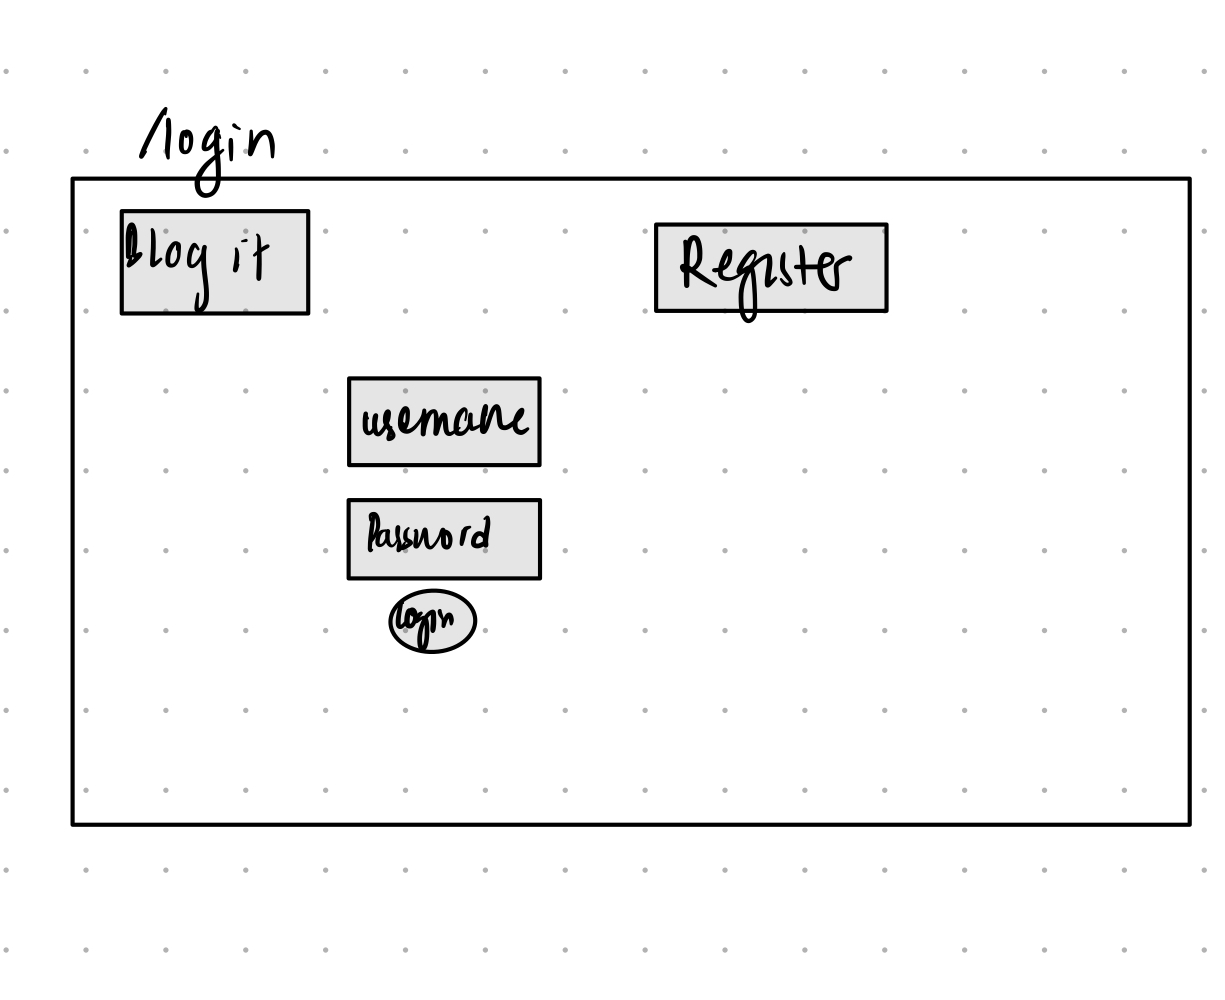 /login
Blog it
Register
username
Password
login